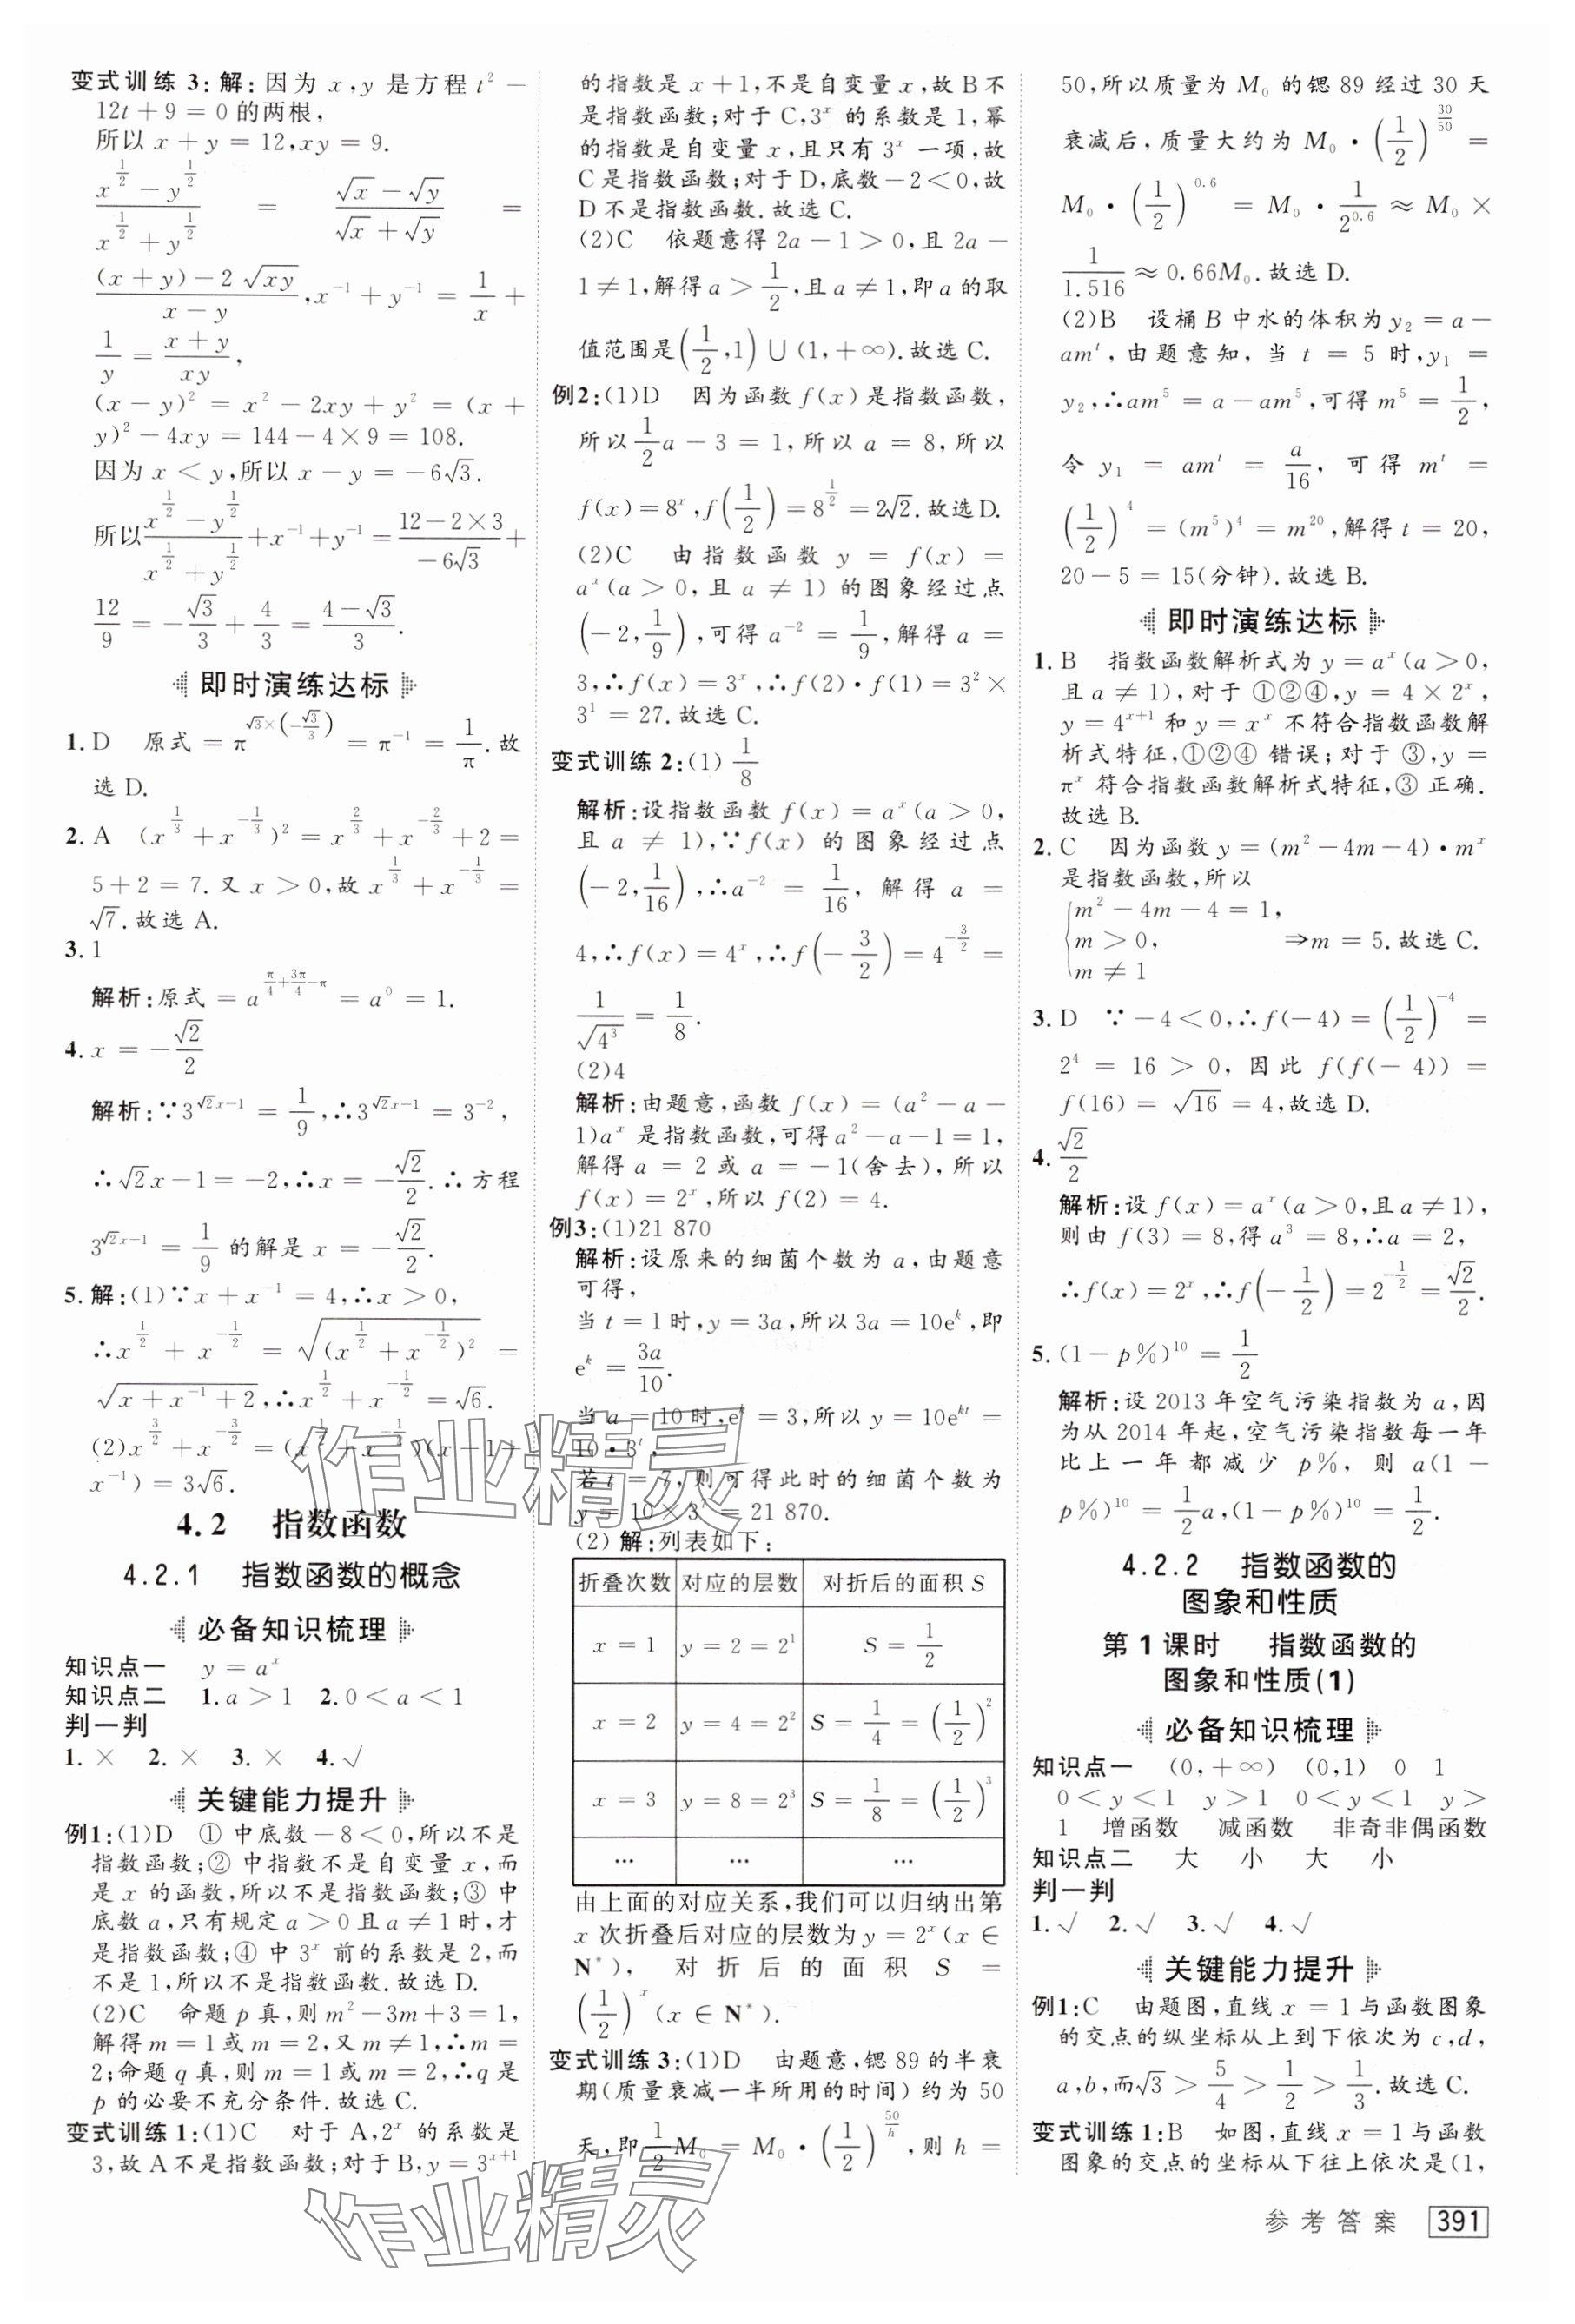 变式训练 3:解:因为 x,y 是方程 t² −
12t + 9 = 0 的两根,
所以 x + y = 12,xy = 9.
(x^(1/2) − y^(1/2))/(x^(1/2) + y^(1/2)) = (√x − √y)/(√x + √y) =
((x + y) − 2√xy)/(x − y), x⁻¹ + y⁻¹ = 1/x +
1/y = (x + y)/xy,
(x − y)² = x² − 2xy + y² = (x +
y)² − 4xy = 144 − 4 × 9 = 108.
因为 x < y,所以 x − y = −6√3.
所以 (x^(1/2) − y^(1/2))/(x^(1/2) + y^(1/2)) + x⁻¹ + y⁻¹ = (12 − 2×3)/(−6√3) +
12/9 = −√3/3 + 4/3 = (4 − √3)/3.
即时演练达标
1. D 原式 = π^(√3×(−√3/3)) = π⁻¹ = 1/π.故
选 D.
2. A (x^(1/3) + x^(−1/3))² = x^(2/3) + x^(−2/3) + 2 =
5 + 2 = 7. 又 x > 0,故 x^(1/3) + x^(−1/3) =
√7.故选 A.
3. 1
解析:原式 = a^(π/4+3π/4−π) = a⁰ = 1.
4. x = −√2/2
解析:∵3^(√2x−1) = 1/9,∴3^(√2x−1) = 3⁻²,
∴√2x − 1 = −2,∴x = −√2/2.∴方程
3^(√2x−1) = 1/9 的解是 x = −√2/2.
5. 解:(1)∵x + x⁻¹ = 4,∴x > 0,
∴x^(1/2) + x^(−1/2) = √((x^(1/2) + x^(−1/2))²) =
√(x + x⁻¹ + 2),∴x^(1/2) + x^(−1/2) = √6.
(2)x^(3/2) + x^(−3/2) = (x^(1/2) + x^(−1/2))(x − 1 +
x⁻¹) = 3√6.
4.2 指数函数
4.2.1 指数函数的概念
必备知识梳理
知识点一 y = aˣ
知识点二 1. a > 1 2. 0 < a < 1
判一判
1. × 2. × 3. × 4. √
关键能力提升
例1:(1)D ① 中底数−8 < 0,所以不是
指数函数;② 中指数不是自变量 x,而
是 x 的函数,所以不是指数函数;③ 中
底数 a,只有规定 a > 0 且 a ≠ 1 时,才
是指数函数;④ 中 3ˣ 前的系数是 2,而
不是 1,所以不是指数函数.故选 D.
(2)C 命题 p 真,则 m² − 3m + 3 = 1,
解得 m = 1 或 m = 2,又 m ≠ 1,∴m =
2;命题 q 真,则 m = 1 或 m = 2,∴q 是
p 的必要不充分条件.故选 C.
变式训练 1:(1)C 对于 A,2ˣ 的系数是
3,故 A 不是指数函数;对于 B,y = 3ˣ⁺¹
的指数是 x + 1,不是自变量 x,故 B 不
是指数函数;对于 C,3ˣ 的系数是 1,幂
的指数是自变量 x,且只有 3ˣ 一项,故
C 是指数函数;对于 D,底数−2 < 0,故
D 不是指数函数.故选 C.
(2)C 依题意得 2a − 1 > 0,且 2a −
1 ≠ 1,解得 a > 1/2,且 a ≠ 1,即 a 的取
值范围是(1/2,1)∪(1,+∞).故选 C.
例2:(1)D 因为函数 f(x) 是指数函数,
所以 1/2 a − 3 = 1,所以 a = 8,所以
f(x) = 8ˣ,f(1/2) = 8^(1/2) = 2√2.故选 D.
(2)C 由指数函数 y = f(x) =
aˣ(a > 0,且 a ≠ 1) 的图象经过点
(−2,1/9),可得 a⁻² = 1/9,解得 a =
3,∴f(x) = 3ˣ,∴f(2)·f(1) = 3² ×
3¹ = 27.故选 C.
变式训练 2:(1)1/8
解析:设指数函数 f(x) = aˣ(a > 0,
且 a ≠ 1),∵f(x) 的图象经过点
(−2,1/16),∴a⁻² = 1/16,解得 a =
4,∴f(x) = 4ˣ,∴f(−3/2) = 4^(−3/2) =
1/√4³ = 1/8.
(2)4
解析:由题意,函数 f(x) = (a² − a −
1)aˣ 是指数函数,可得 a² − a − 1 = 1,
解得 a = 2 或 a = −1(舍去),所以
f(x) = 2ˣ,所以 f(2) = 4.
例3:(1)21 870
解析:设原来的细菌个数为 a,由题意
可得,
当 t = 1 时,y = 3a,所以 3a = 10eᵏ,即
eᵏ = 3a/10.
当 a = 10 时,eᵏ = 3,所以 y = 10eᵏᵗ =
10·3ᵗ,
若 t = 7,则可得此时的细菌个数为
y = 10 × 3⁷ = 21 870.
(2) 解:列表如下:
折叠次数 对应的层数 对折后的面积 S
x = 1 y = 2 = 2¹ S = 1/2
x = 2 y = 4 = 2² S = 1/4 = (1/2)²
x = 3 y = 8 = 2³ S = 1/8 = (1/2)³
… … …
由上面的对应关系,我们可以归纳出第
x 次折叠后对应的层数为 y = 2ˣ(x ∈
N*),对折后的面积 S =
(1/2)ˣ(x ∈ N*).
变式训练 3:(1)D 由题意,锶 89 的半衰
期(质量衰减一半所用的时间) 约为 50
天,即 1/2 M₀ = M₀·(1/2)^(50/h),则 h =
50,所以质量为 M₀ 的锶 89 经过 30 天
衰减后,质量大约为 M₀·(1/2)^(30/50) =
M₀·(1/2)^0.6 = M₀·1/2^0.6 ≈ M₀ ×
1/1.516 ≈ 0.66M₀.故选 D.
(2)B 设桶 B 中水的体积为 y₂ = a −
amᵗ,由题意知,当 t = 5 时,y₁ =
y₂,∴am⁵ = a − am⁵,可得 m⁵ = 1/2,
令 y₁ = amᵗ = a/16,可得 mᵗ =
(1/2)⁴ = (m⁵)⁴ = m²⁰,解得 t = 20,
20 − 5 = 15(分钟).故选 B.
即时演练达标
1. B 指数函数解析式为 y = aˣ(a > 0,
且 a ≠ 1),对于 ①②④,y = 4 × 2ˣ,
y = 4ˣ⁺¹ 和 y = xˣ 不符合指数函数解
析式特征,①②④ 错误;对于 ③,y =
πˣ 符合指数函数解析式特征,③ 正确.
故选 B.
2. C 因为函数 y = (m² − 4m − 4)·mˣ
是指数函数,所以
{m² − 4m − 4 = 1,
m > 0, ⇒m = 5.故选 C.
m ≠ 1
3. D ∵−4 < 0,∴f(−4) = (1/2)⁻⁴ =
2⁴ = 16 > 0,因此 f(f(−4)) =
f(16) = √16 = 4,故选 D.
4. √2/2
解析:设 f(x) = aˣ(a > 0,且 a ≠ 1),
则由 f(3) = 8,得 a³ = 8,∴a = 2,
∴f(x) = 2ˣ,∴f(−1/2) = 2^(−1/2) = √2/2.
5. (1 − p%)¹⁰ = 1/2
解析:设 2013 年空气污染指数为 a,因
为从 2014 年起,空气污染指数每一年
比上一年都减少 p%,则 a(1 −
p%)¹⁰ = 1/2 a,(1 − p%)¹⁰ = 1/2.
4.2.2 指数函数的
图象和性质
第 1 课时 指数函数的
图象和性质(1)
必备知识梳理
知识点一 (0,+∞) (0,1) 0 1
0 < y < 1 y > 1 0 < y < 1 y >
1 增函数 减函数 非奇非偶函数
知识点二 大 小 大 小
判一判
1. √ 2. √ 3. √ 4. √
关键能力提升
例1:C 由题图,直线 x = 1 与函数图象
的交点的纵坐标从上到下依次为 c,d,
a,b,而√3 > 5/4 > 1/2 > 1/3.故选 C.
变式训练 1:B 如图,直线 x = 1 与函数
图象的交点的坐标从下往上依次是(1,
参考答案 391
作业精灵
作业精灵